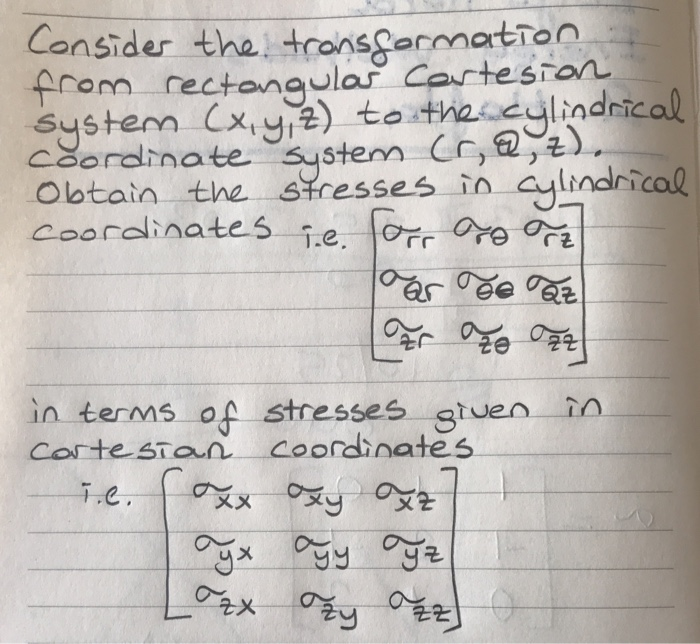 Consider the transformation
from rectangular Cartesian
system (x,y,z) to the cylindrical
coordinate system (r, θ, z).
Obtain the stresses in cylindrical
coordinates i.e. [σrr σrθ σrz
σθr σθθ σθz
σzr σzθ σzz]
in terms of stresses given in
cartesian coordinates
i.e. [σxx σxy σxz
σyx σyy σyz
σzx σzy σzz]